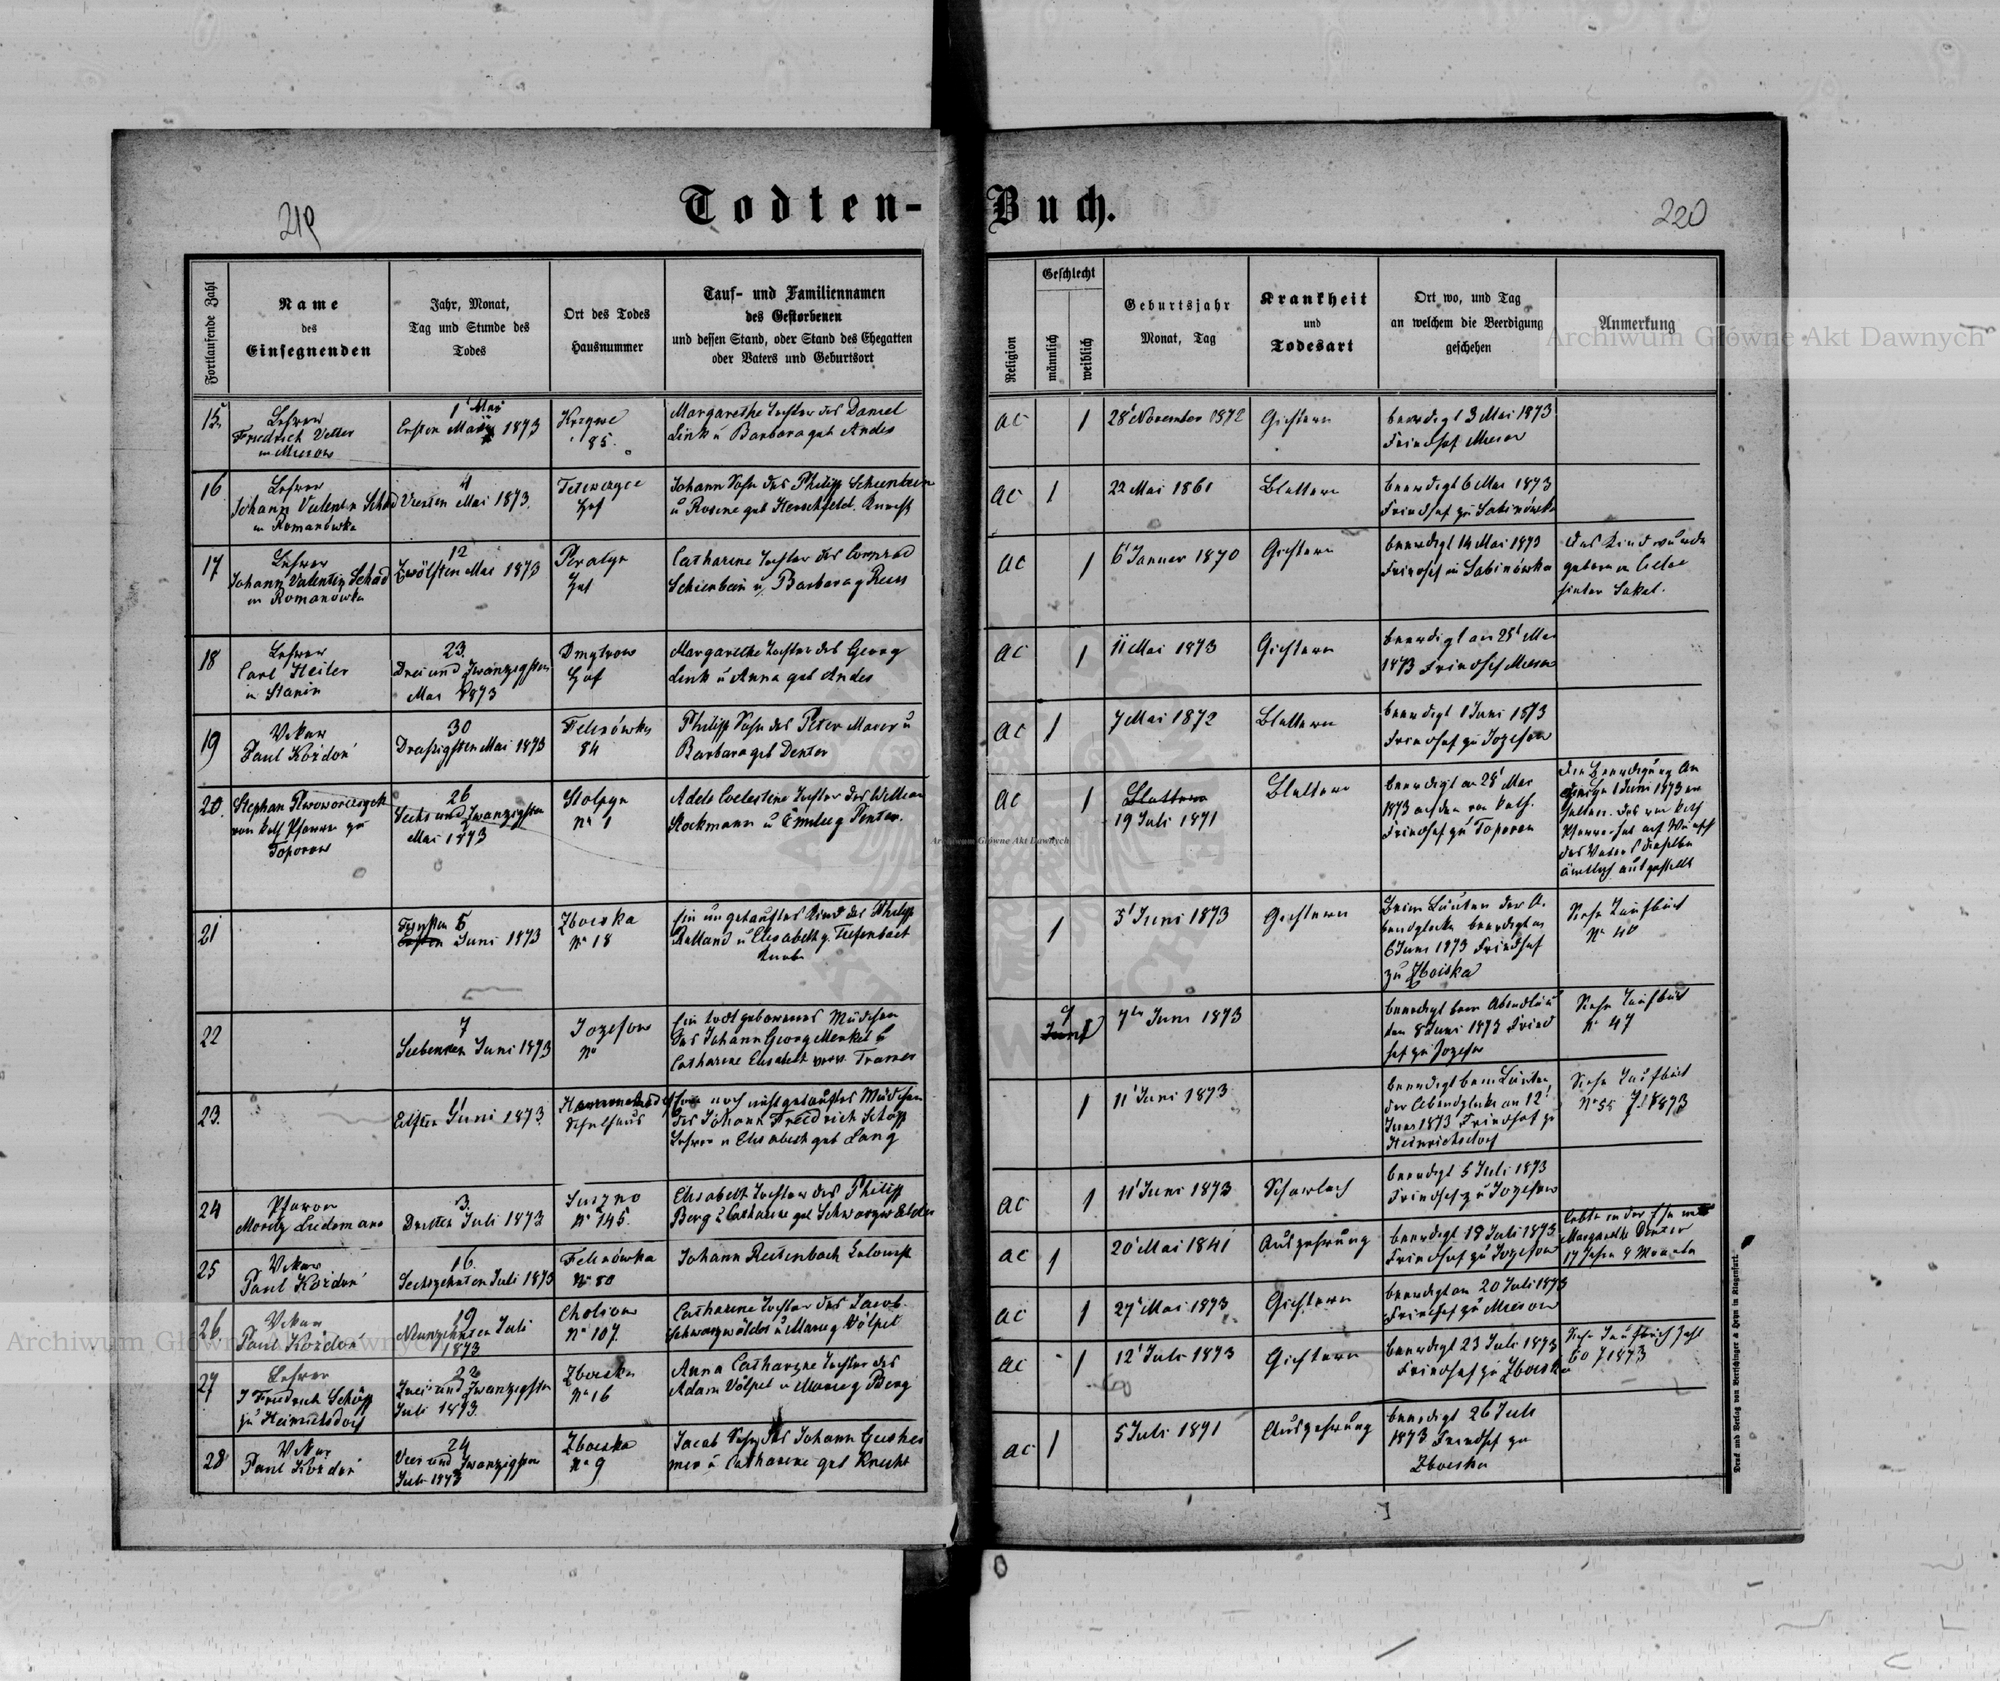 Todten-Buch.
219
220
Fortlaufende Zahl
Name
des
Einsegnenden
Jahr, Monat,
Tag und Stunde des
Todes
Ort des Todes
Hausnummer
Tauf- und Familiennamen
des Gestorbenen
und dessen Stand, oder Stand des Ehegatten
oder Vaters und Geburtsort
Religion
Geschlecht
männlich
weiblich
Geburtsjahr
Monat, Tag
Krankheit
und
Todesart
Ort wo, und Tag
an welchem die Beerdigung
geschehen
Anmerkung
15
Lehrer
Friedrich
in Mierow
1 Mai
Ersten 1873
85.
Margarethe Tochter des Daniel
Link u Barbara geb Andes
AC
1
28 November 1872
Gichtern
beerdigt 3 Mai 1873
Friedhof Mierow
16
Lehrer
Johann Valentin Schad
in Romanówka
4
Vierten Mai 1873.
Hof
Johann Sohn des Philipp Schienbein
u Rosine geb Herschfeld.
AC
1
22 Mai 1861
Blattern
beerdigt 6 Mai 1873
Friedhof zu Sabinówka
17
Lehrer
Johann Valentin Schad
in Romanówka
12
Zwölften Mai 1873
Peratyn
Hof
Catharine Tochter des Conrad
Schienbein u, Barbara g Reus
AC
1
6 Januer 1870
Gichtern
beerdigt 14 Mai 1873
Friedhof in Sabinówka
das Kind wurde
geboren in
hinter Sokal.
18
Lehrer
Carl Heiler
in Stanin
23.
Drei und Zwanzigsten
Mai 1873
Dmytrow
Hof
Margarethe Tochter des Georg
Link u Anna geb Andes
AC
1
11 Mai 1873
Gichtern
beerdigt an 25 Mai
1873 Friedhof Mierow
19
Vikar
Paul Kożdoń
30
Dreißigsten Mai 1873
Felizówka
84
Philipp Sohn des Peter Maier u
Barbara geb Denter
AC
1
7 Mai 1872
Blattern
beerdigt 1 Juni 1873
Friedhof zu Jozefow
20.
Stephan
röm kath Pfarrer zu
Toporow
26
Sechs und Zwanzigsten
Mai 1873
Stolpyn
Nr 1
Adele Coelestine Tochter des William
Stockmann u Emilie g
AC
1
Blattern
19 Juli 1871
Blattern
beerdigt an 28 Mai
1873 auf den röm kath.
Friedhof zu Toporow
Die Beerdigung
1 Juni 1873
röm kath
Pfarrer hat auf Wunsch
des Vaters dieselbe
ämtlich ausgestellt
21
5
Juni 1873
Zboiska
Nr 18
Ein ungetauftes Kind des Philipp
Rolland u Elisabeth g. Tiefenbach
Knabe
1
5 Juni 1873
Gichtern
Beim Läuten der
Abendglocke beerdigt am
6 Juni 1873 Friedhof
zu Zboiska
Siehe Taufbuch
Nr 40
22
7
Siebenten Juni 1873
Jozefow
Nr
Ein todt geborenes Mädchen
des Johann Georg Merkel &
Catharine Elisabeth
7ten Juni 1873
beerdigt beim Abendläu
ten 8 Juni 1873 Fried
hof zu Jozefow
Siehe Taufbuch
Nr 47
23.
11
Eilften Juni 1873
Schulhaus
Ein noch nicht getauftes Mädchen
des Johann Friedrich Schöpp
Lehrer u Elisabeth geb Lang
1
11 Juni 1873
beerdigt beim Läuten
der Abendglocke an 12
Juni 1873 Friedhof zu
Heinrichsdorf
Siehe Taufbuch
Nr 55 J. 1873
24
Pfarrer
Moritz
3.
Dritten Juli 1873
Suszno
Nr 145.
Elisabeth Tochter des Philipp
Berg & Catharine geb
AC
1
11 Juni 1873
Scharlach
beerdigt 5 Juli 1873
Friedhof zu Jozefow
25
Vikar
Paul Kożdoń
16.
Sechzehnten Juli 1873
Felizówka
Nr 80
Johann Reitenbach
AC
1
20 Mai 1841
Auszehrung
beerdigt 18 Juli 1873
Friedhof zu Jozefow
lebte in der Ehe mit
Margarethe Denter
17 Jahre 9 Monate
26.
Vikar
Paul Kożdoń
19
Neunzehnten Juli
1873
Cholojow
Nr 107.
Catharine Tochter des Jacob
Schwarzwälder u Marie g Völpel
AC
1
27 Mai 1873
Gichtern
beerdigt am 20 Juli 1873
Friedhof zu Mierow
27
Lehrer
J Friedrich Schöpp
zu Heinrichsdorf
22
Zwei und Zwanzigsten
Juli 1873.
Zboiska
Nr 16
Anna Catharine Tochter des
Adam Völpel u Marie g Berg
AC
1
12 Juli 1873
Gichtern
beerdigt 23 Juli 1873
Friedhof zu Zboiska
Siehe Taufbuch Zahl
60 J 1873
28
Vikar
Paul Kożdoń
24
Vier und Zwanzigsten
Juli 1873
Zboiska
Nr 9
Jacob Sohn des Johann
u Catharine geb Knecht
AC
1
5 Juli 1871
Auszehrung
beerdigt 26 Juli
1873 Friedhof zu
Zboiska
Druck und Verlag von Bertschinger & Heyn in Klagenfurt.
Archiwum Główne Akt Dawnych
Archiwum Główne Akt Dawnych
Archiwum Główne Akt Dawnych